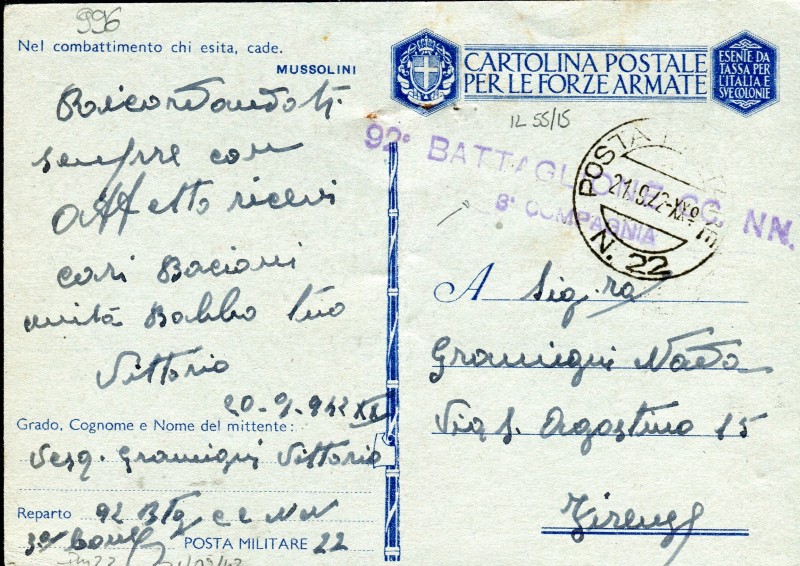 996
Nel combattimento chi esita, cade.
MUSSOLINI
Ricordandoti
sempre con
affetto ricevi
cari Bacioni
unità Babbo tuo
Vittorio
20-9-942 XX
Grado, Cognome e Nome del mittente:
Gramigni Vittorio
Reparto 92 Btg cc NN
3a Comp POSTA MILITARE 22
CARTOLINA POSTALE
PER LE FORZE ARMATE
ESENTE DA
TASSA PER
L'ITALIA E
SUE COLONIE
IL 55/15
92° BATTAGLIONE CC. NN.
8° COMPAGNIA
POSTA
21.9.42-XXº
N. 22
A Sig.ra
Gramigni Nada
Via S. Agostino 15
Firenze